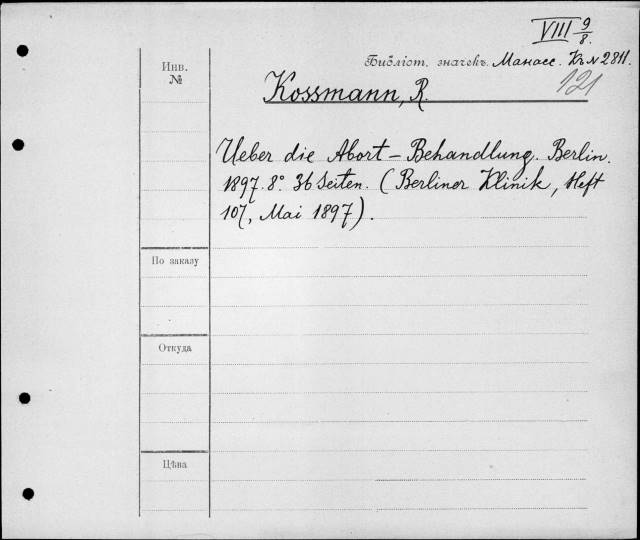 VIII 9/8.
Инв. №
Библіот. значекъ. Манасс. К. N 2811.
121
Kossmann, R.
Ueber die Abort-Behandlung. Berlin.
1897. 8° 36 Seiten. (Berliner Klinik, Heft
107, Mai 1897).
По заказу
Откуда
Цѣна